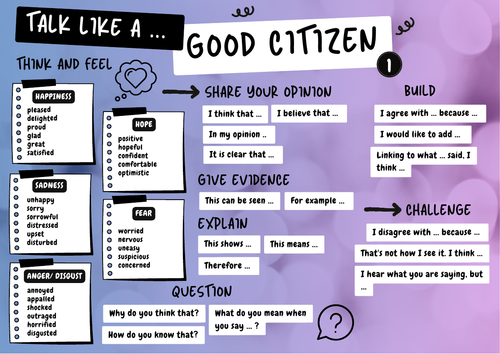 TALK LIKE A ...
GOOD CITIZEN
1
THINK AND FEEL
HAPPINESS
pleased
delighted
proud
glad
great
satisfied
HOPE
positive
hopeful
confident
comfortable
optimistic
SADNESS
unhappy
sorry
sorrowful
distressed
upset
disturbed
FEAR
worried
nervous
uneasy
suspicious
concerned
ANGER/ DISGUST
annoyed
appalled
shocked
outraged
horrified
disgusted
SHARE YOUR OPINION
I think that ...
I believe that ...
In my opinion ..
It is clear that ...
GIVE EVIDENCE
This can be seen ...
For example ...
EXPLAIN
This shows ...
This means ...
Therefore ...
QUESTION
Why do you think that?
What do you mean when
you say ... ?
How do you know that?
BUILD
I agree with ... because ...
I would like to add ...
Linking to what ... said, I
think ...
CHALLENGE
I disagree with ... because ...
That's not how I see it. I think ...
I hear what you are saying, but
...
?